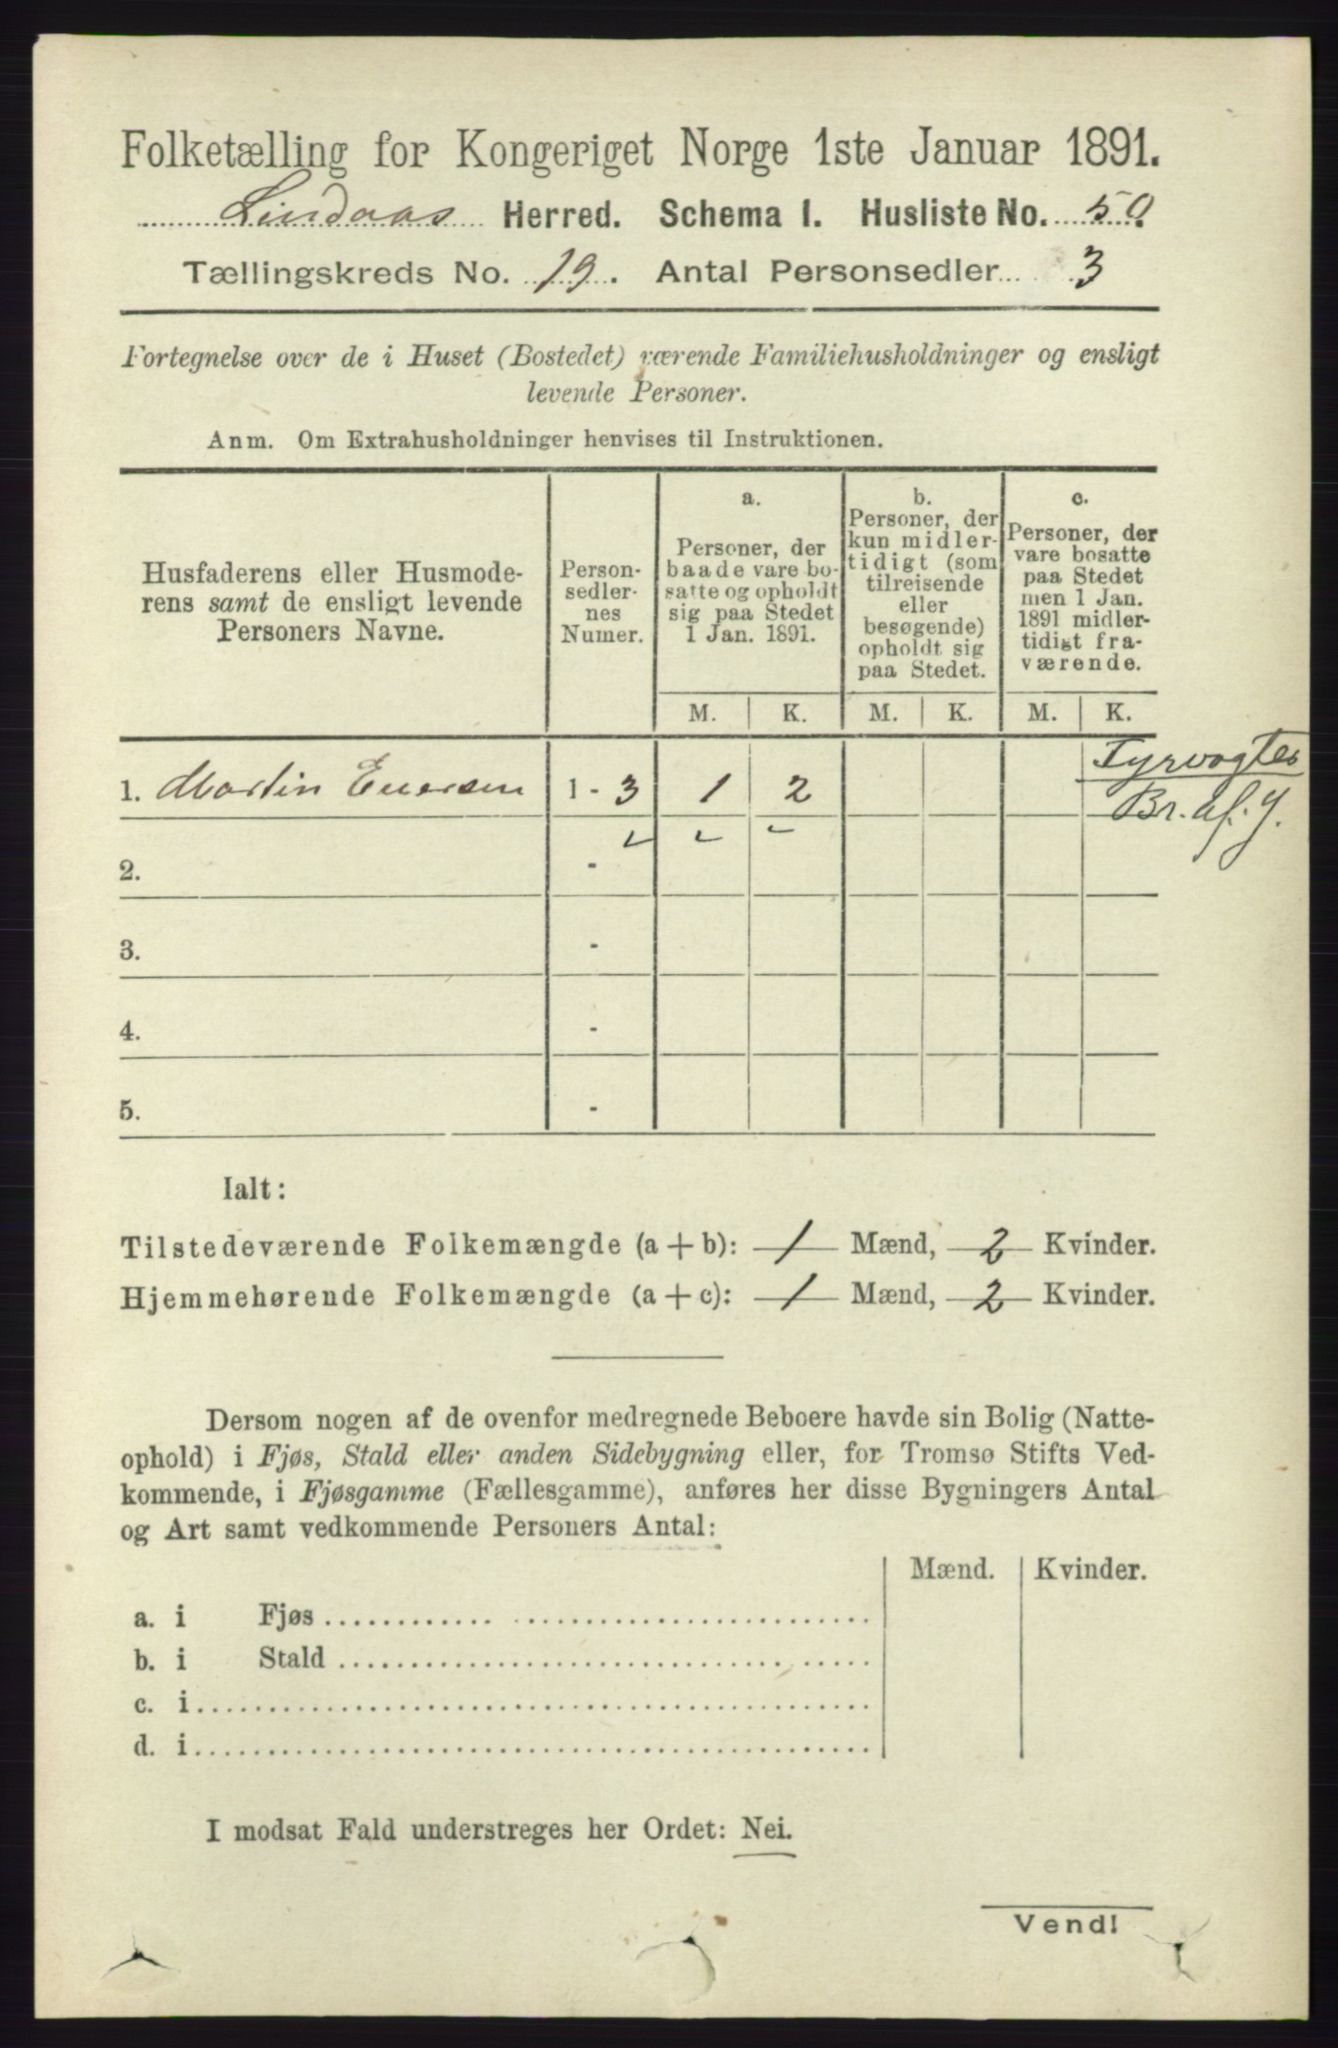 Folketælling for Kongeriget Norge 1ste Januar 1891.
Lindaas Herred. Schema I. Husliste No. 50
Tællingskreds No. 19. Antal Personsedler 3
Fortegnelse over de i Huset (Bostedet) værende Familiehusholdninger og ensligt
levende Personer.
Anm. Om Extrahusholdninger henvises til Instruktionen.
Husfaderens eller Husmode-
rens samt de ensligt levende
Personers Navne.
Person-
sedler-
nes
Numer.
a.
Personer, der
baade vare bo-
satte og opholdt
sig paa Stedet
1 Jan. 1891.
b.
Personer, der
kun midler-
tidigt (som
tilreisende
eller
besøgende)
opholdt sig
paa Stedet.
c.
Personer, der
vare bosatte
paa Stedet
men 1 Jan.
1891 midler-
tidigt fra-
værende.
M. K. M. K. M. K.
1. Martin 1 - 3 1 2
Fyrvogter
Br. af. J.
2. -
3. -
4. -
5. -
Ialt:
Tilstedeværende Folkemængde (a + b): 1 Mænd, 2 Kvinder.
Hjemmehørende Folkemængde (a + c): 1 Mænd, 2 Kvinder.
Dersom nogen af de ovenfor medregnede Beboere havde sin Bolig (Natte-
ophold) i Fjøs, Stald eller anden Sidebygning eller, for Tromsø Stifts Ved-
kommende, i Fjøsgamme (Fællesgamme), anføres her disse Bygningers Antal
og Art samt vedkommende Personers Antal:
Mænd. Kvinder.
a. i Fjøs
b. i Stald
c. i
d. i
I modsat Fald understreges her Ordet: Nei.
Vend!